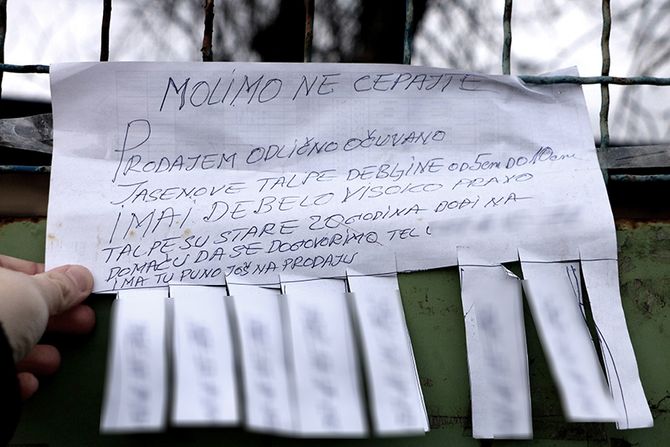 MOLIMO NE CEPAJTE
PRODAJEM ODLIČNO OČUVANO
JASENOVE TALPE DEBLJINE OD 5cm DO 10cm
IMA I DEBELO VISOKO DRAVO
TALPE SU STARE 20 GODINA DOĐI NA
DOMAĆU DA SE DOGOVORIMO TELI
IMA TU PUNO JOŠ NA PRODAJU